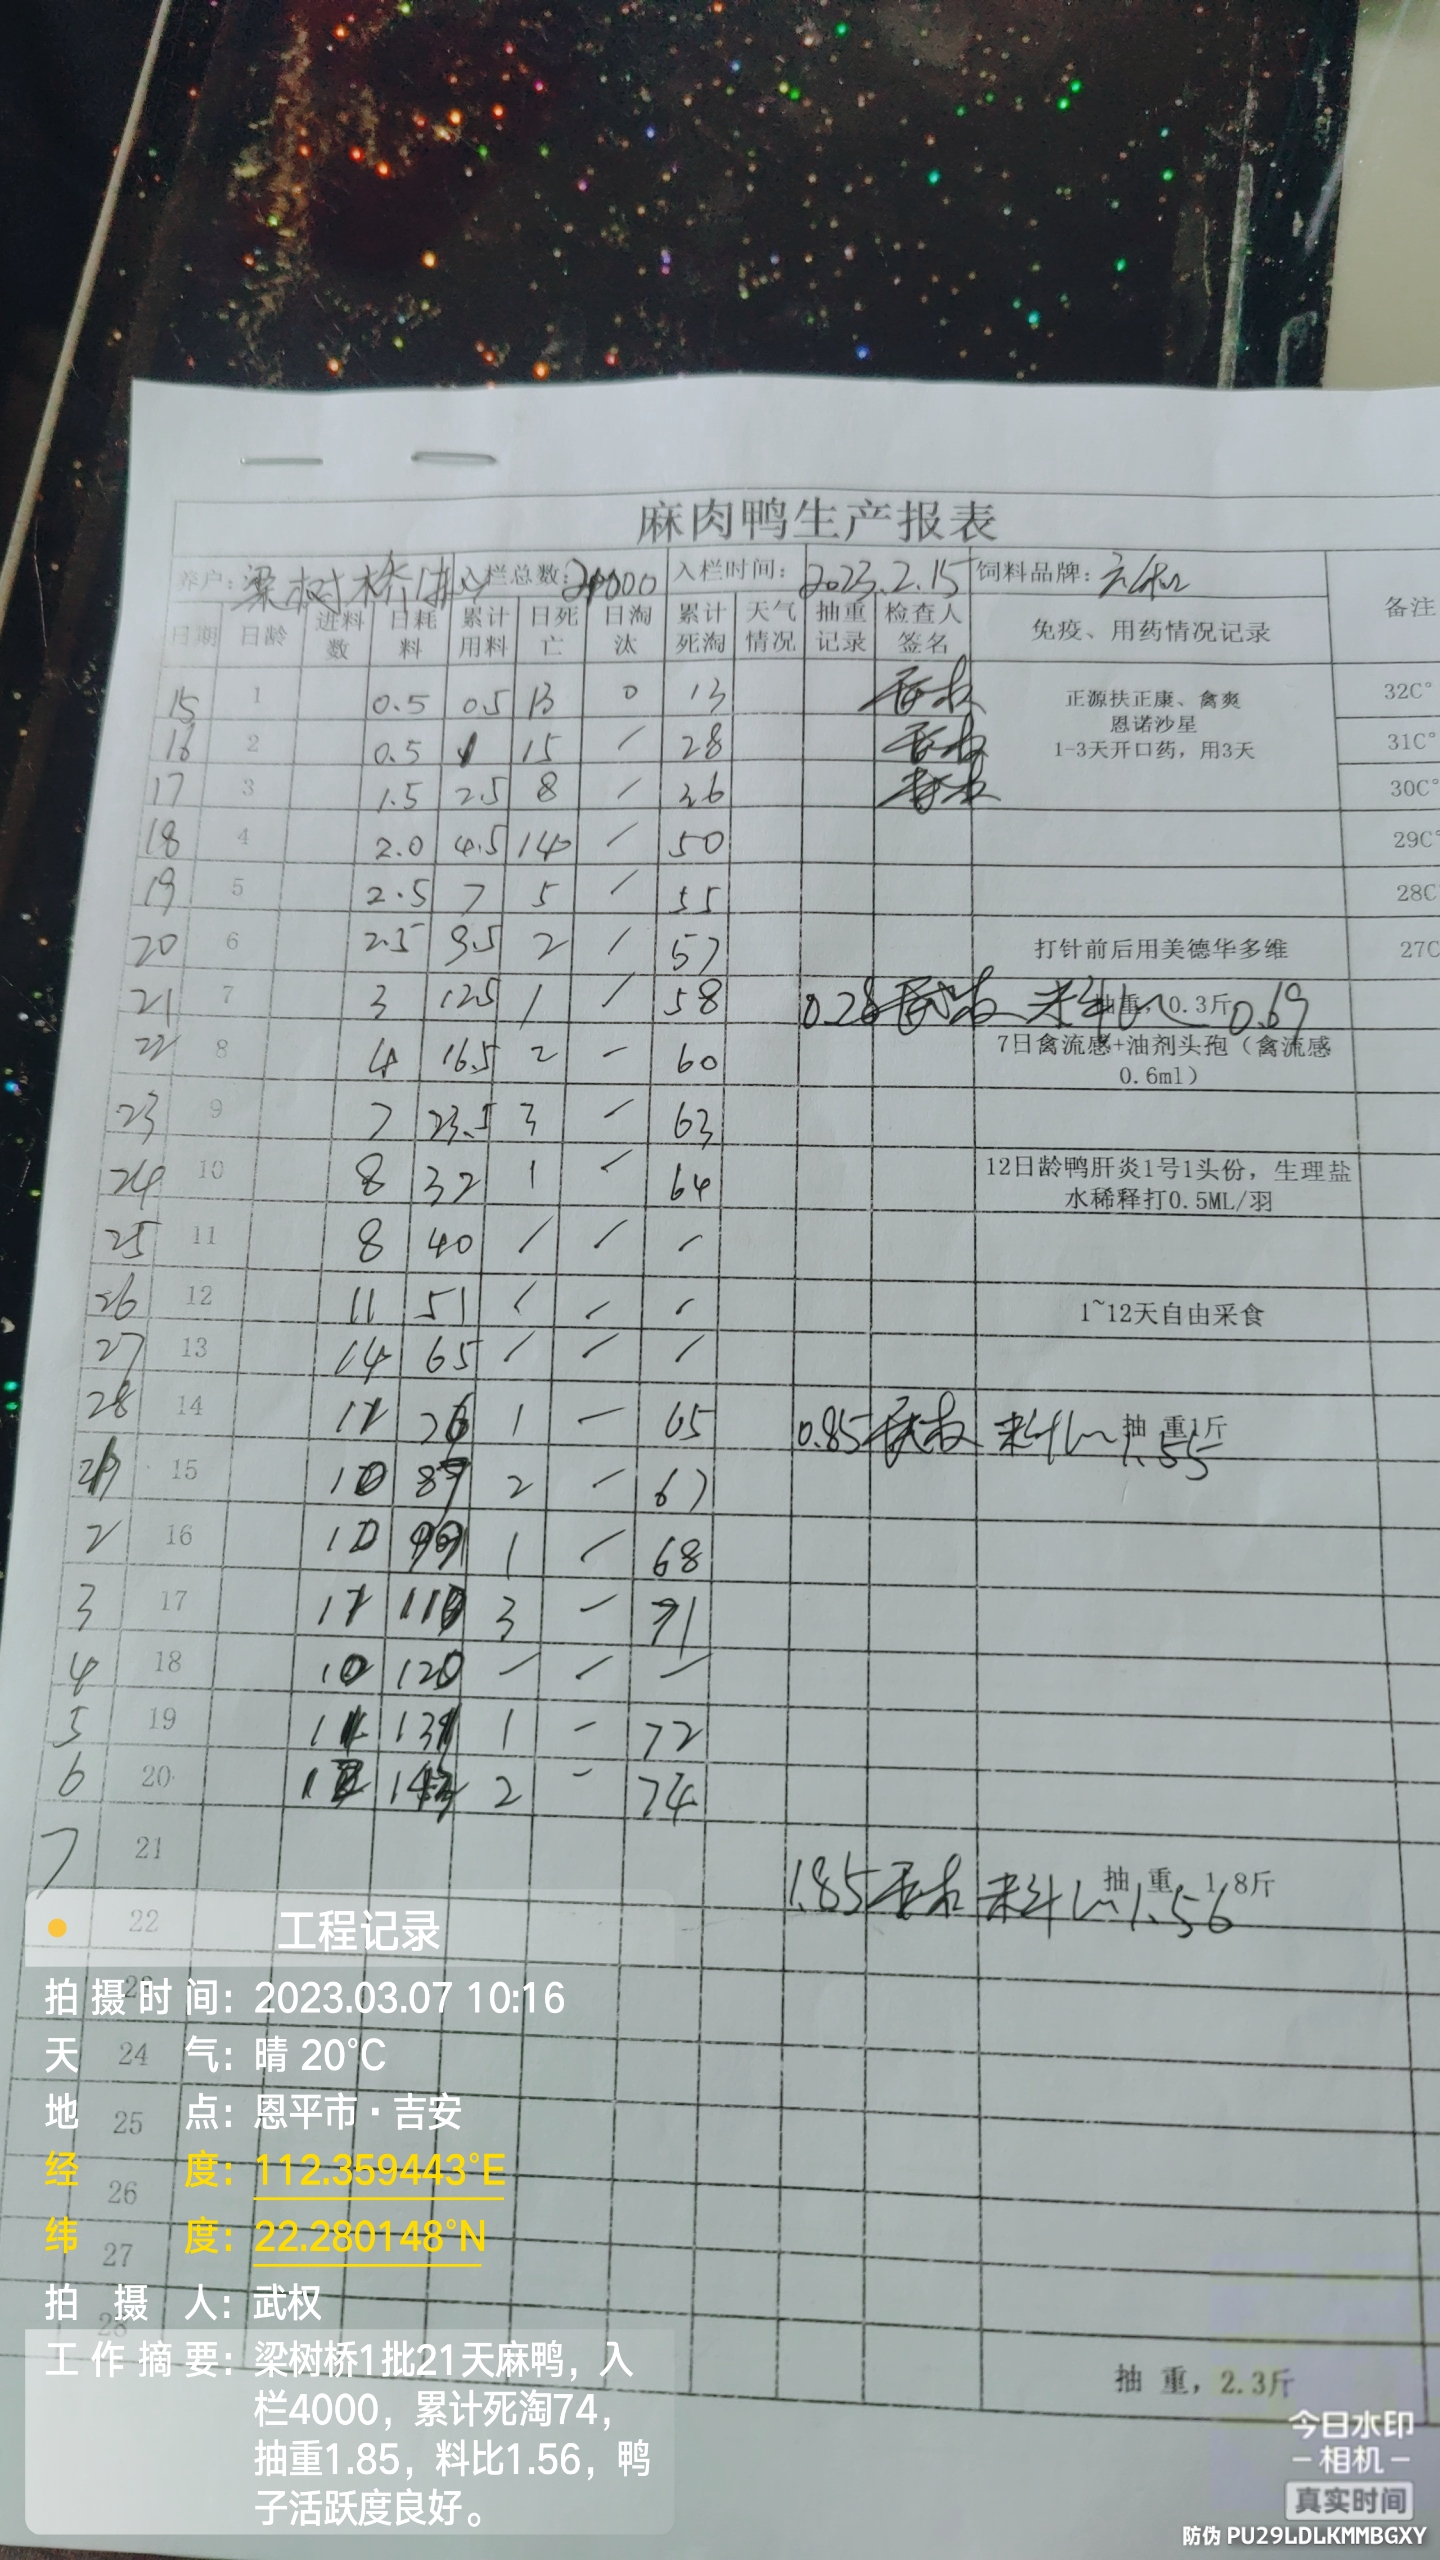 麻肉鸭生产报表
养户: 梁树桥1批 入栏总数: 入栏时间: 2023.2.15 饲料品牌:
日期 日龄 进料数 日耗料 累计用料 日死亡 日淘汰 累计死淘 天气情况 抽重记录 检查人签名 免疫、用药情况记录 备注
15 1 0.5 0.5 13 0 13 正源扶正康、禽爽 32C°
恩诺沙星
16 2 0.5 1 15 / 28 1-3天开口药，用3天 31C°
17 3 1.5 2.5 8 / 36 30C°
18 4 2.0 4.5 14 / 50 29C°
19 5 2.5 7 5 / 55 28C
20 6 2.5 9.5 2 / 57 打针前后用美德华多维 27C
21 7 3 12.5 1 / 58 0.28 武权 料比 0.69 抽重，0.3斤
22 8 4 16.5 2 - 60 7日禽流感+油剂头孢（禽流感
0.6ml）
23 9 7 23.5 3 / 63
24 10 8 32 1 / 64 12日龄鸭肝炎1号1头份，生理盐
水稀释打0.5ML/羽
25 11 8 40 / / /
26 12 11 51 / / / 1~12天自由采食
27 13 14 65 / / /
28 14 11 76 1 - 65 0.85 武权 料比 1.55 抽 重1斤
15 10 2 - 67
2 16 10 1 / 68
3 17 11 3 - 71
4 18 10 120 - / -
5 19 11 131 1 - 72
6 20 2 - 74
7 21 1.85 武权 料比 1.56 抽 重，1.8斤
22
23
24
25
26
27
28 抽 重，2.3斤
工程记录
拍摄时间: 2023.03.07 10:16
天气: 晴 20℃
地点: 恩平市·吉安
经度: 112.359443°E
纬度: 22.280148°N
拍摄人: 武权
工作摘要: 梁树桥1批21天麻鸭，入
栏4000，累计死淘74，
抽重1.85，料比1.56，鸭
子活跃度良好。
今日水印
-相机-
真实时间
防伪 PU29LDLKMMBGXY